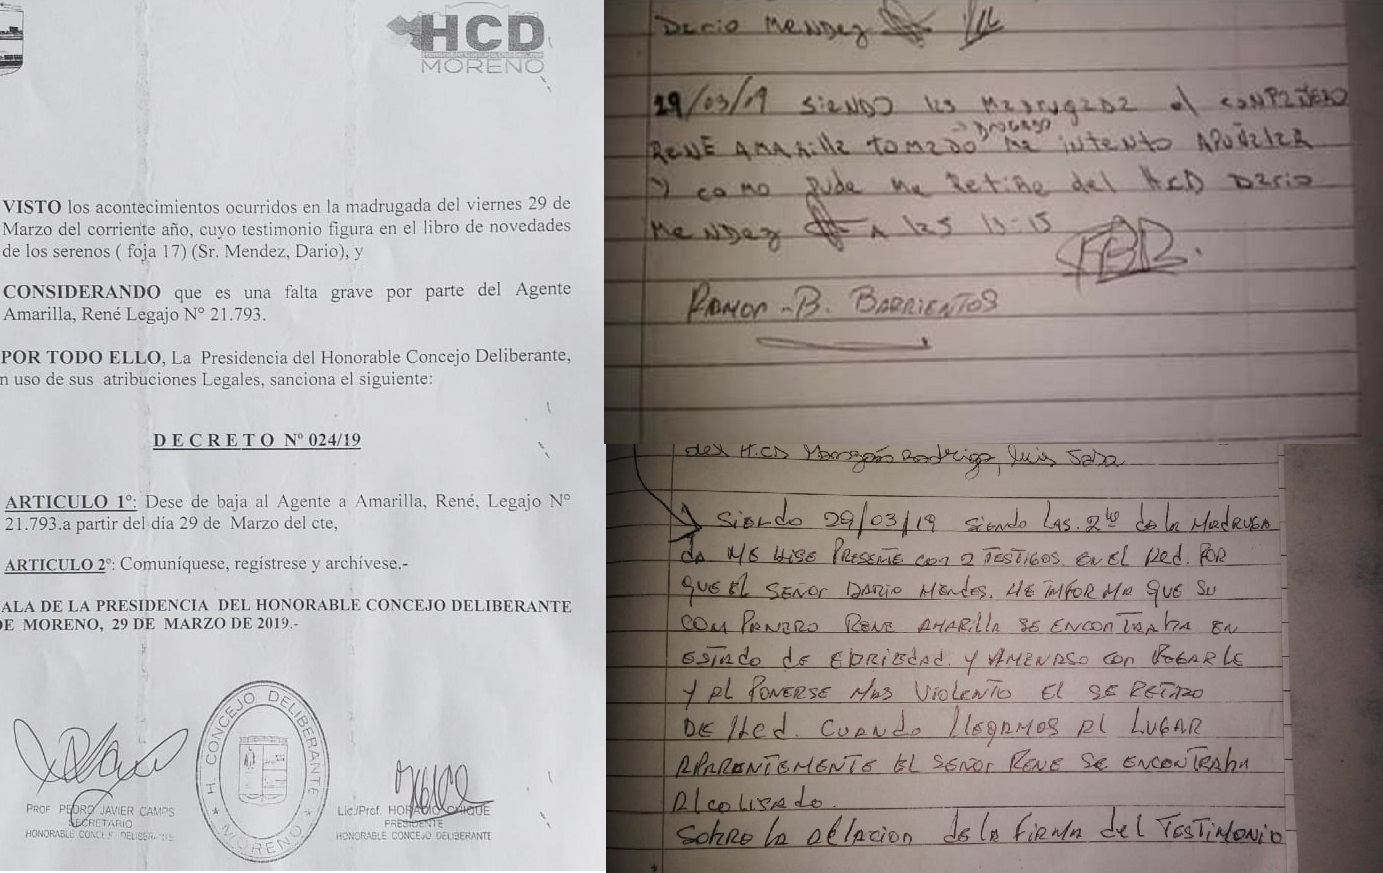 HCD
MORENO
VISTO los acontecimientos ocurridos en la madrugada del viernes 29 de
Marzo del corriente año, cuyo testimonio figura en el libro de novedades
de los serenos ( foja 17) (Sr. Mendez, Dario), y
CONSIDERANDO que es una falta grave por parte del Agente
Amarilla, René Legajo N° 21.793.
POR TODO ELLO, La Presidencia del Honorable Concejo Deliberante,
n uso de sus atribuciones Legales, sanciona el siguiente:
D E C R E T O N° 024/19
ARTICULO 1°: Dese de baja al Agente a Amarilla, René, Legajo N°
21.793.a partir del día 29 de Marzo del cte,
ARTICULO 2°: Comuníquese, regístrese y archívese.-
ALA DE LA PRESIDENCIA DEL HONORABLE CONCEJO DELIBERANTE
DE MORENO, 29 DE MARZO DE 2019.-
PROF PEDRO JAVIER CAMPS
SECRETARIO
HONORABLE CONCEJO DELIBERANTE
H. CONCEJO DELIBERANTE
★ MORENO ★
Lic./Prof. HORACIO CHIQUE
PRESIDENTE
HONORABLE CONCEJO DELIBERANTE
Dario Mendez
29/03/19 siendo las madrugada el compañero
drogado
René Amarilla tomado me intento apuñalar
y como pude me retire del HCD Dario
Mendez A las 11:15
Ramon - B. BARRIENTOS
del H.CD Rodrigo, Luis
Siendo 29/03/19 siendo LAS. 2 de la MADRUGA
da ME HISE PRESENTE con 2 TESTIGOS. EN EL Hcd. POR
QUE EL SEÑOR DARIO MENDES. ME INFORMA QUE SU
COMPANERO RENE AMARILLA SE ENCONTRAba EN
ESTADO DE EBRIEDAD. Y AMENASO con PEGARLE
Y AL PONERSE MAS VIOLENTO EL SE RETIRO
DE Hcd. CUANDO LLEGAMOS AL LUGAR
APARENTEMENTE EL SEÑOR RENE SE ENCONTRABA
ALCOLISADO.
SOBRE la de la FIRMA del TESTIMONIO